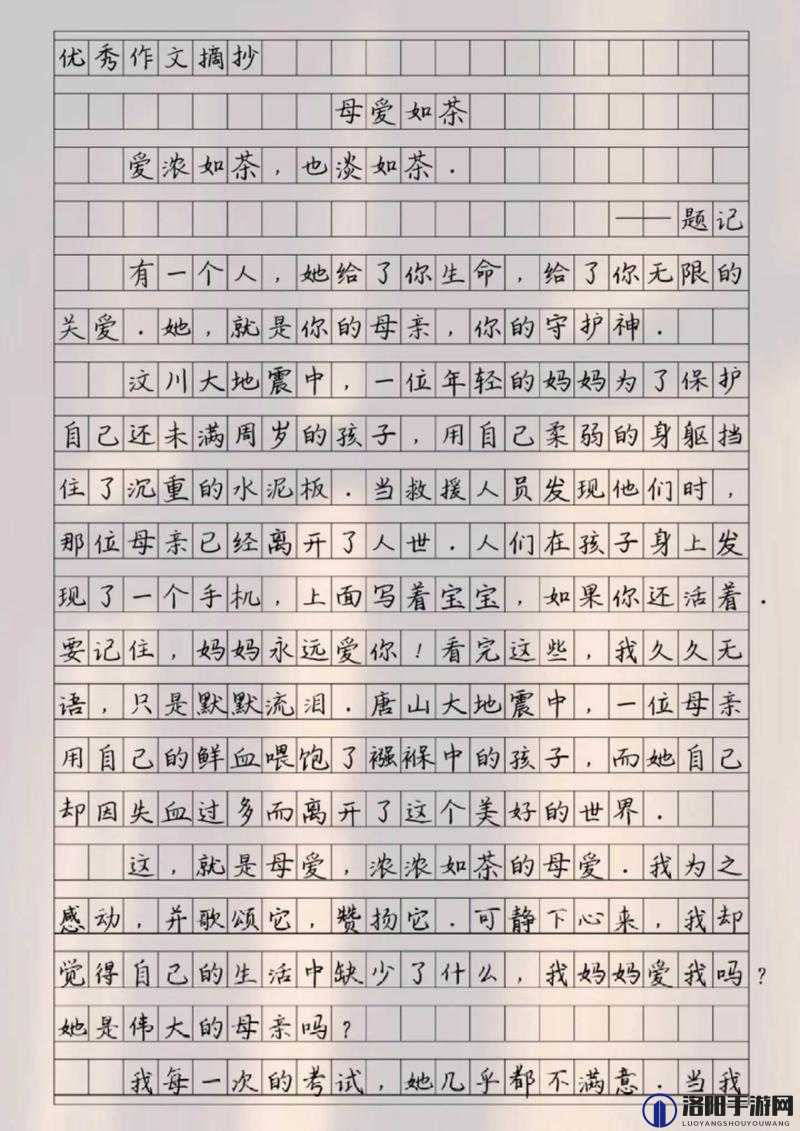 优秀作文摘抄
母爱如茶
爱浓如茶，也淡如茶．
——题记
有一个人，她给了你生命，给了你无限的
关爱．她，就是你的母亲，你的守护神．
汶川大地震中，一位年轻的妈妈为了保护
自己还未满周岁的孩子，用自己柔弱的身躯挡
住了沉重的水泥板．当救援人员发现他们时，
那位母亲已经离开了人世．人们在孩子身上发
现了一个手机，上面写着宝宝，如果你还活着．
要记住，妈妈永远爱你！看完这些，我久久无
语，只是默默流泪．唐山大地震中，一位母亲
用自己的鲜血喂饱了襁褓中的孩子，而她自己
却因失血过多而离开了这个美好的世界．
这，就是母爱，浓浓如茶的母爱．我为之
感动，并歌颂它，赞扬它．可静下心来，我却
觉得自己的生活中缺少了什么，我妈妈爱我吗？
她是伟大的母亲吗？
我每一次的考试，她几乎都不满意．当我
洛阳手游网
LUOYANGSHOUYOUWANG